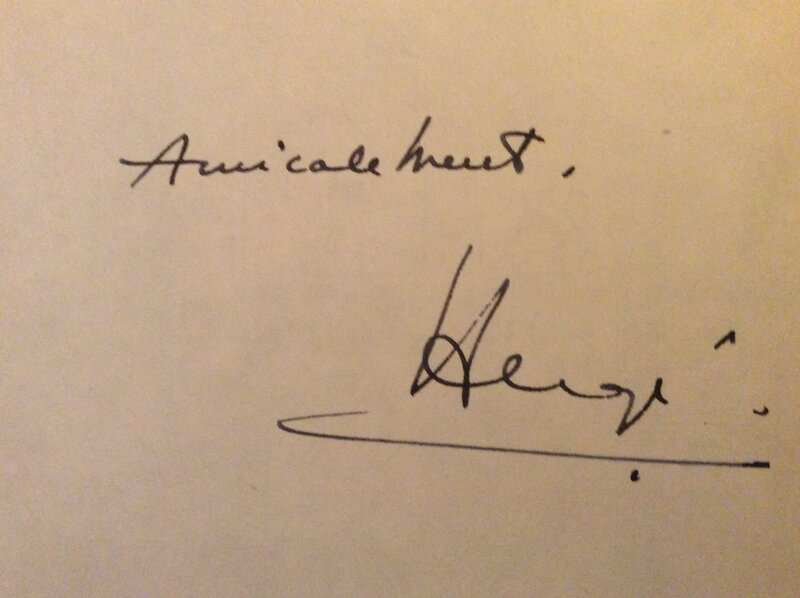 Amicalement.
Hergé.